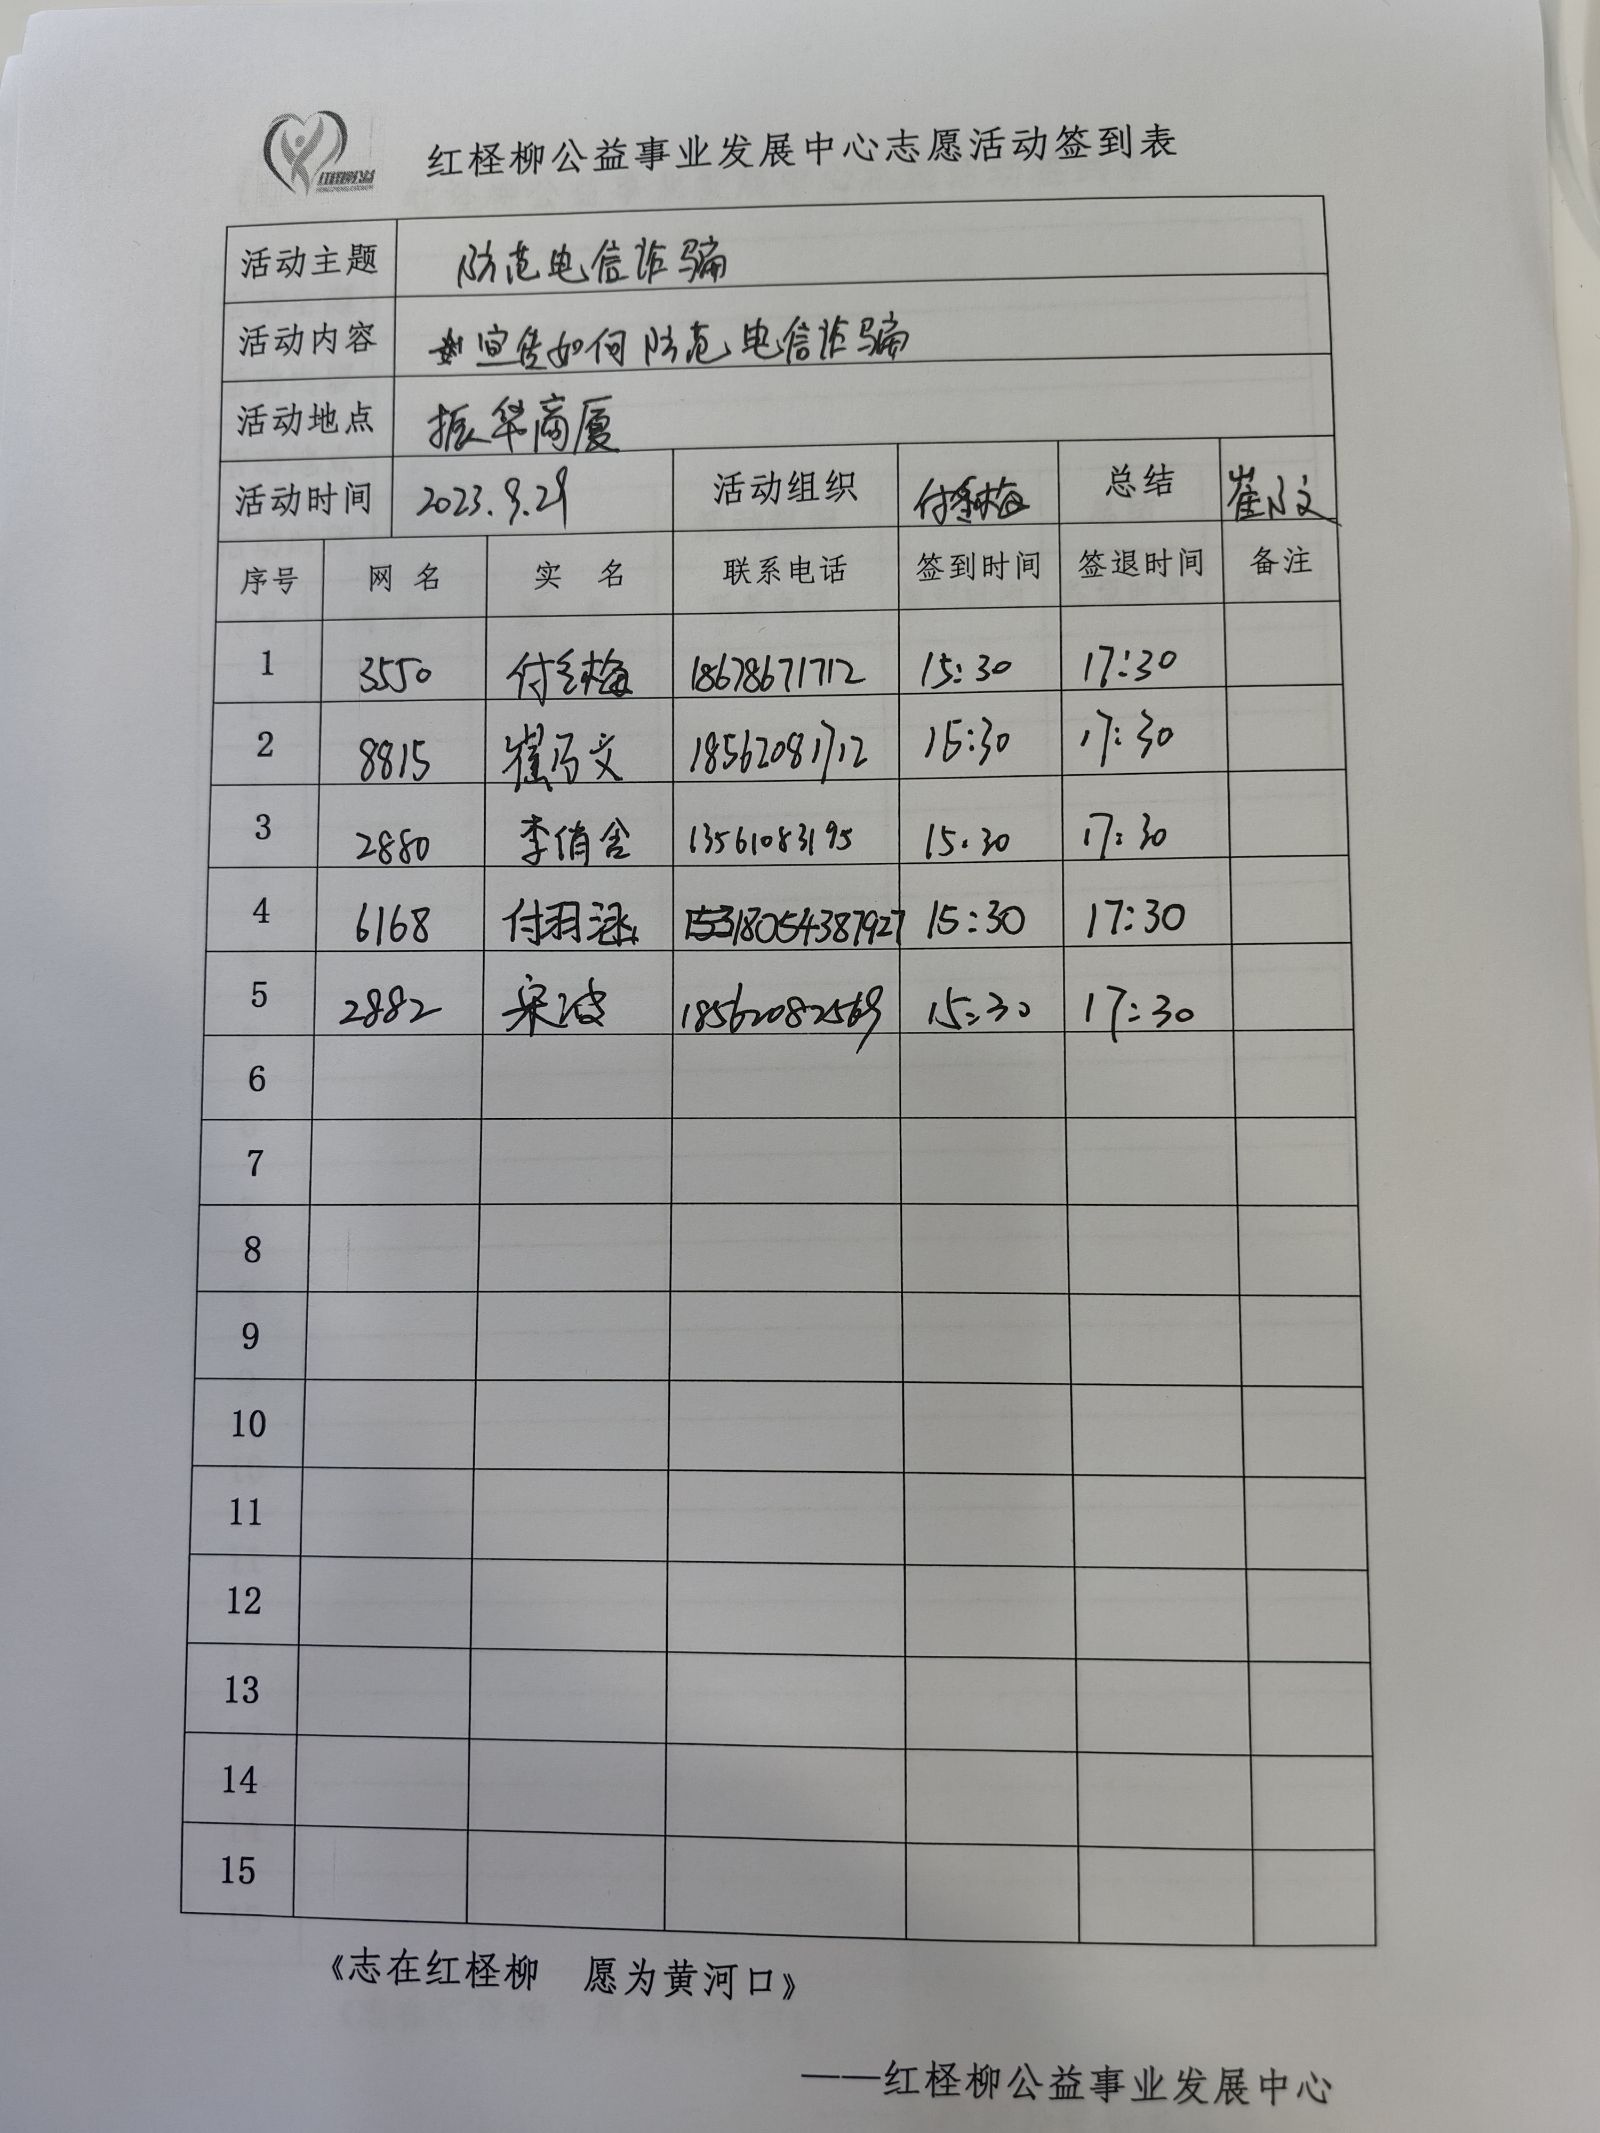 红柽柳公益事业发展中心志愿活动签到表
活动主题 防范电信诈骗
活动内容 宣传如何防范电信诈骗
活动地点 振华商厦
活动时间 2023.9.29 活动组织 付 梅 总结 崔 文
序号 网名 实名 联系电话 签到时间 签退时间 备注
1 3550 付 梅 18678671712 15:30 17:30
2 8815 崔 文 18562081712 15:30 17:30
3 2880 李俏 13561083195 15:30 17:30
4 6168 付羽涵 18054387927 15:30 17:30
5 2882 宋波 18562082569 15:30 17:30
6
7
8
9
10
11
12
13
14
15
《志在红柽柳 愿为黄河口》
——红柽柳公益事业发展中心